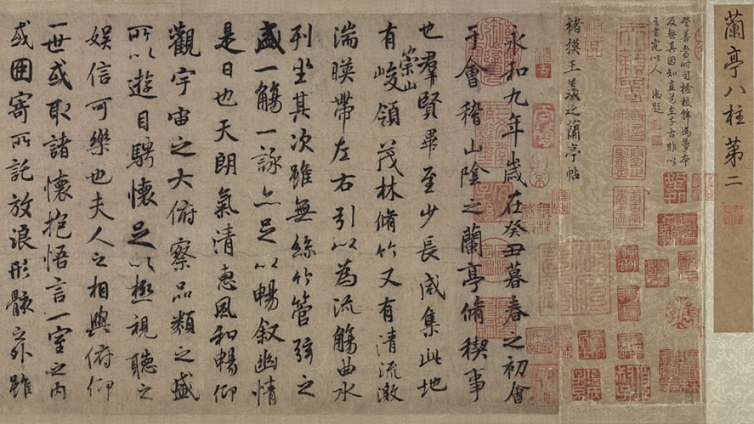 蘭亭八柱第二
褚摸王羲之蘭亭帖
永和九年歲在癸丑暮春之初會
于會稽山陰之蘭亭脩稧事
也羣賢畢至少長咸集此地
有崇山峻領茂林脩竹又有清流激
湍暎帶左右引以為流觴曲水
列坐其次雖無絲竹管弦之
盛一觴一詠亦足以暢叙幽情
是日也天朗氣清惠風和暢仰
觀宇宙之大俯察品類之盛
所以遊目騁懷足以極視聽之
娛信可樂也夫人之相與俯仰
一世或取諸懷抱悟言一室之內
或因寄所託放浪形骸之外雖